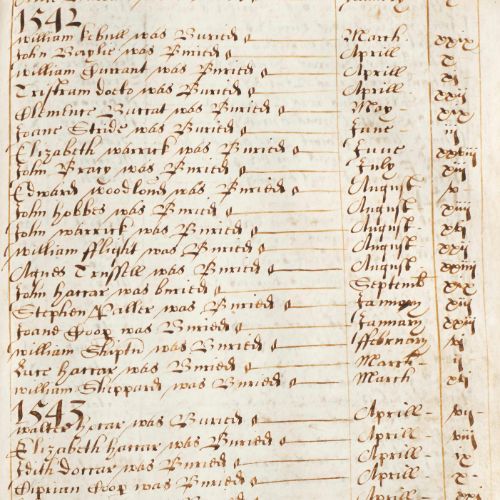 1542
William Kebull was Buried March xxix
John Baylie was Buried Aprill x
William Currant was Buried Aprill xj
Tristram docto was Buried Aprill xxij
Clemence Barrat was Buried May xxx
Joane Stride was Buried June iij
Elizabeth warrick was Buried June xxviij
John Bracy was Buried July xiij
Edward Woodlond was Buried August v
John Hobbes was Buried August xiiij
John warrick was Buried August xvj
William fflight was Buried August xxij
Agnes Trussell was Buried August xxiiij
John Hattar was buried Septemb xxx
Stephen Paller was Buried January xiij
Joane Coop was Buried January xxiij
William Shipton was Buried ffebruary xj
Hattar was Buried March ij
William Sheppard was Buried March xij
1543
Walter Hatar was Buried Aprill vij
Elizabeth Hattar was Buried Aprill viij
Edith Dottar was Buried Aprill ix
Siprian Coop was Buried Aprill x
Aprill